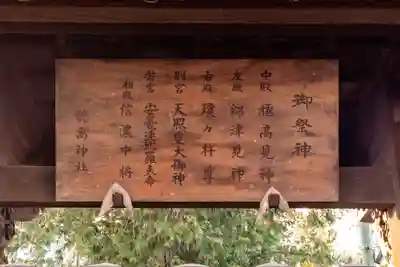 御祭神
中殿 穂高見神
左殿 綿津見神
右殿 瓊々杵尊
別宮 天照皇大御神
若宮 安曇連比羅夫命
相殿 信濃中将
穂高神社